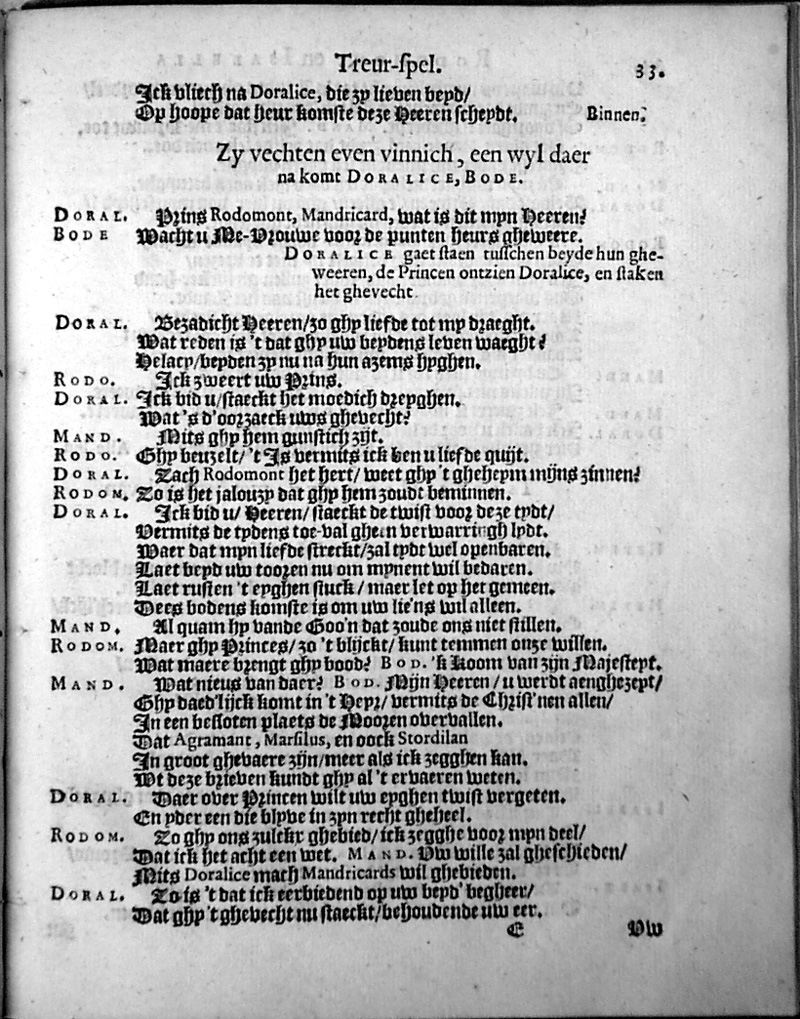 Treur-spel. 33.
Ick vliech na Doralice, die zy lieven beyd/
Op hoope dat heur komste deze Heeren scheydt. Binnen.
Zy vechten even vinnich, een wyl daer
na komt DORALICE, BODE.
DORAL. Prins Rodomont, Mandricard, wat is dit myn Heeren?
BODE Wacht u Me-Vrouwe voor de punten heurs gheweere.
DORALICE gaet staen tusschen beyde hun ghe-
weeren, de Princen ontzien Doralice, en staken
het ghevecht.
DORAL. Bezadicht Heeren/zo ghy liefde tot my draeght.
Wat reden is 't dat ghy uw beydens leven waeght?
Helacy/beyden zy nu na hun azems hyghen.
RODO. Ick zweert uw Prins.
DORAL. Ick bid u/staeckt het moedich dreyghen.
Wat 's d'oorzaeck uws ghevecht?
MAND. Mits ghy hem gunstich zijt.
RODO. Ghy beuzelt/ 't Is vermits ick ben u liefde quijt.
DORAL. Zach Rodomont het hert/ weet ghy 't gheheym mijns zinnen?
RODOM. Zo is het jalouzy dat ghy hem zoudt beminnen.
DORAL. Ick bid u/ Heeren/ staeckt de twist voor deze tydt/
Vermits de tydens toe-val gheen verwarringh lydt.
Waer dat myn liefde streckt/zal tydt wel openbaren.
Laet beyd uw tooren nu om mynent wil bedaren.
Laet rusten 't eyghen stuck/ maer let op het gemeen.
Dees bodens komste is om uw lie'ns wil alleen.
MAND. Al quam hy vande Goo'n dat zoude ons niet stillen.
RODOM. Maer ghy Princes/ zo 't blijckt/ kunt temmen onze willen.
Wat maere brengt ghy bood? BOD. 'k Koom van zijn Majesteyt.
MAND. Wat nieus van daer? BOD. Mijn Heeren/ u werdt aenghezeyt/
Ghy daed'lijck komt in 't Heyr/ vermits de Christ'nen allen/
In een besloten plaets de Mooren overvallen.
Dat Agramant, Marsilus, en oock Stordilan
In groot ghevaere zijn/meer als ick zegghen kan.
Wt deze brieven kundt ghy al 't ervaeren weten.
DORAL. Daer over Princen wilt uw eyghen twist vergeten.
En yder een die blyve in zyn recht gheheel.
RODOM. Zo ghy ons zulckx ghebied/ ick zegghe voor myn deel/
Dat ick het acht een wet. MAND. Uw wille zal gheschieden/
Mits Doralice mach Mandricards wil ghebieden.
DORAL. Zo is 't dat ick eerbiedend op uw beyd' begheer/
Dat ghy 't ghevecht nu staeckt/behoudende uw eer.
E Uw